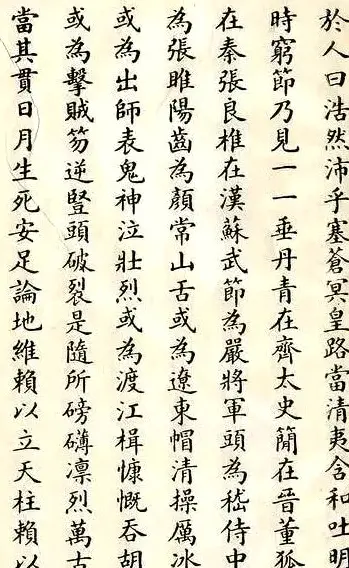 於人曰浩然沛乎塞蒼冥皇路當清夷含和吐明
時窮節乃見一一垂丹青在齊太史簡在晉董狐
在秦張良椎在漢蘇武節為嚴將軍頭為嵇侍中
為張睢陽齒為顏常山舌或為遼東帽清操厲冰
或為出師表鬼神泣壯烈或為渡江楫慷慨吞胡
或為擊賊笏逆豎頭破裂是隨所磅礴凛烈萬古
當其貫日月生死安足論地維賴以立天柱賴以